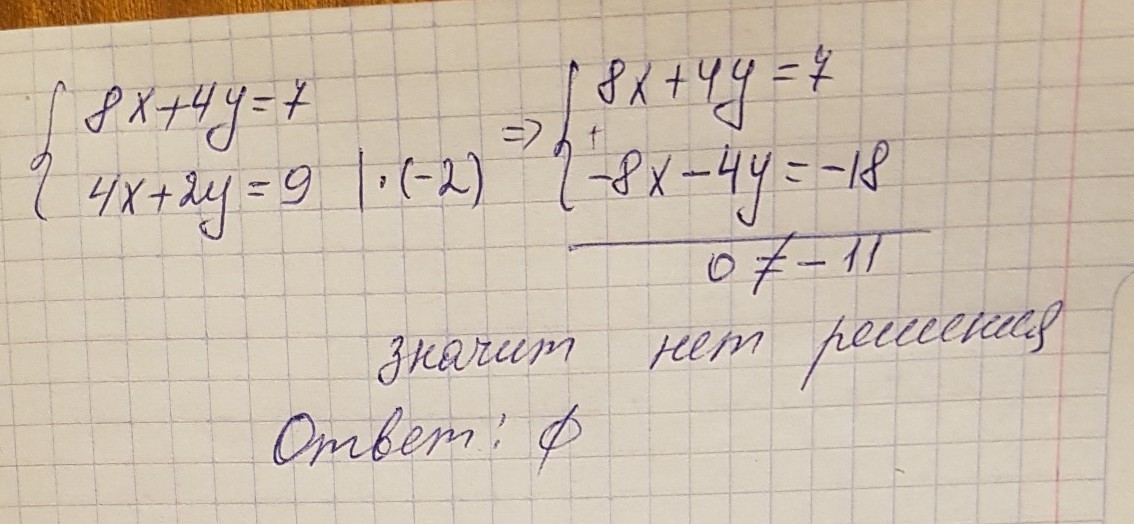 8x+4y=7
4x+2y=9 |·(-2)
=>
8x+4y=7
+
-8x-4y=-18
0≠-11
значит нет решения
Ответ: ∅